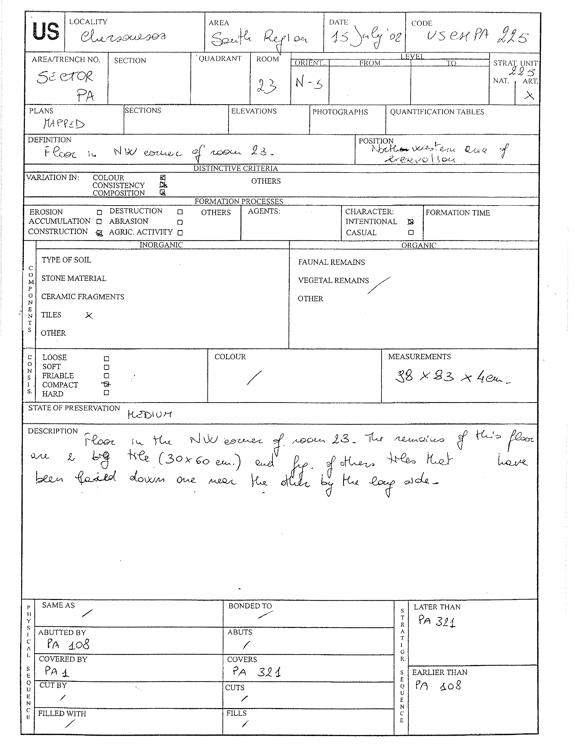 US
LOCALITY AREA DATE CODE
Chersonesos South Region 15 July '02 US CH PA 225
AREA/TRENCH NO. SECTION QUADRANT ROOM LEVEL
ORIENT. FROM TO STRAT. UNIT
SECTOR PA 23 N-S 225
NAT. ART.
X
PLANS SECTIONS ELEVATIONS PHOTOGRAPHS QUANTIFICATION TABLES
MAPPED
DEFINITION POSITION
Floor in NW corner of room 23. North-western area of
excavation.
DISTINCTIVE CRITERIA
VARIATION IN: COLOUR
CONSISTENCY OTHERS
COMPOSITION
FORMATION PROCESSES
EROSION DESTRUCTION OTHERS AGENTS: CHARACTER: FORMATION TIME
ACCUMULATION ABRASION INTENTIONAL
CONSTRUCTION AGRIC. ACTIVITY CASUAL
INORGANIC ORGANIC
COMPONENTS
TYPE OF SOIL FAUNAL REMAINS
STONE MATERIAL VEGETAL REMAINS /
CERAMIC FRAGMENTS OTHER
TILES X
OTHER
CONSIS.
LOOSE COLOUR MEASUREMENTS
SOFT
FRIABLE / 38 x 83 x 4cm.
COMPACT
HARD
STATE OF PRESERVATION MEDIUM
DESCRIPTION Floor in the NW corner of room 23. The remains of this floor
are a big tile (30x60 cm.) and frg. of others tiles that have
been down one near the other by the long side.
PHYSICAL SEQUENCE
SAME AS / BONDED TO /
ABUTTED BY ABUTS
PA 108 /
COVERED BY COVERS
PA 1 PA 321
CUT BY CUTS
/ /
FILLED WITH FILLS
/ /
STRATIGR. SEQUENCE
LATER THAN
PA 321
EARLIER THAN
PA 108